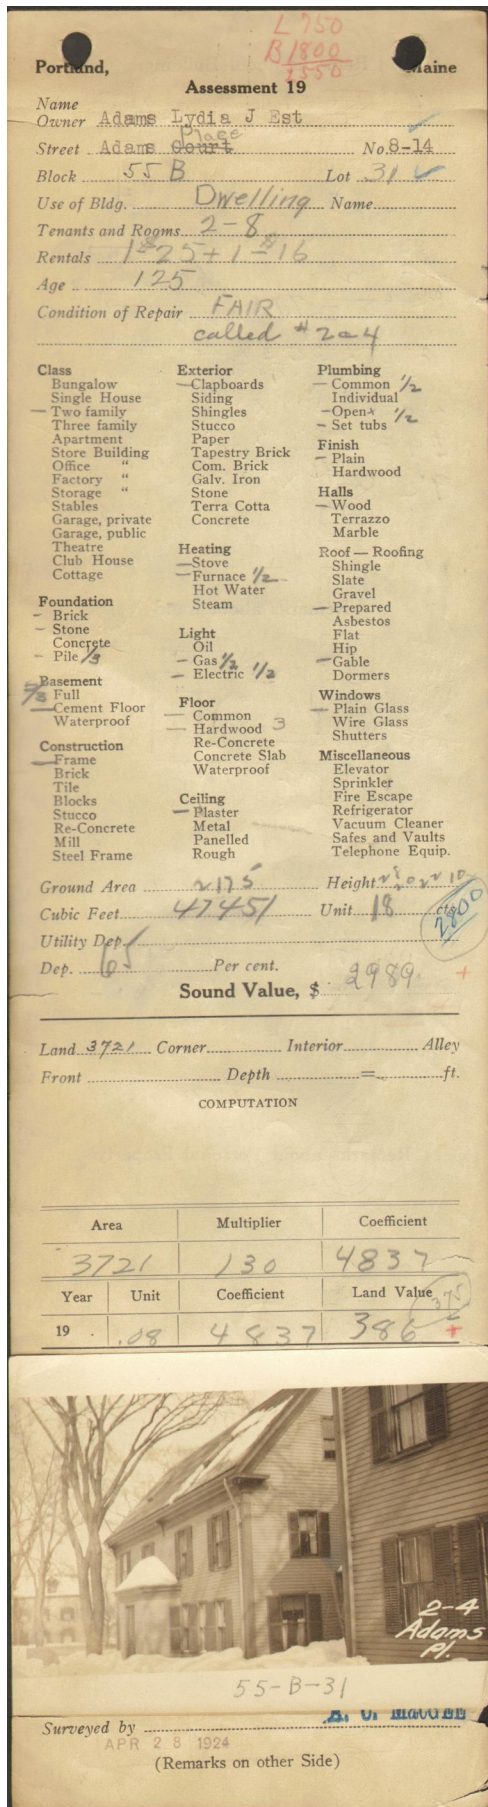 L 750
B 1800
2550
Portland, Maine
Assessment 19
Name
Owner Adams Lydia J Est
Place
Street Adams Court No. 8-14
Block 55 B Lot 31
Use of Bldg. Dwelling Name
Tenants and Rooms 2-8
Rentals 1-$25 + 1-$16
Age 125
Condition of Repair FAIR
called #2-4
Class
Bungalow
Single House
— Two family
Three family
Apartment
Store Building
Office "
Factory "
Storage "
Stables
Garage, private
Garage, public
Theatre
Club House
Cottage
Foundation
- Brick
- Stone
Concrete
- Pile 1/3
Basement
2/3 Full
— Cement Floor
Waterproof
Construction
— Frame
Brick
Tile
Blocks
Stucco
Re-Concrete
Mill
Steel Frame
Exterior
— Clapboards
Siding
Shingles
Stucco
Paper
Tapestry Brick
Com. Brick
Galv. Iron
Stone
Terra Cotta
Concrete
Heating
— Stove
— Furnace 1/2
Hot Water
Steam
Light
Oil
- Gas 1/2
- Electric 1/2
Floor
— Common
— Hardwood 3
Re-Concrete
Concrete Slab
Waterproof
Ceiling
— Plaster
Metal
Panelled
Rough
Plumbing
— Common 1/2
Individual
- Open 1/2
- Set tubs
Finish
- Plain
Hardwood
Halls
— Wood
Terrazzo
Marble
Roof — Roofing
Shingle
Slate
Gravel
— Prepared
Asbestos
Flat
Hip
— Gable
Dormers
Windows
— Plain Glass
Wire Glass
Shutters
Miscellaneous
Elevator
Sprinkler
Fire Escape
Refrigerator
Vacuum Cleaner
Safes and Vaults
Telephone Equip.
Ground Area 2175 Height
Cubic Feet 47451 Unit 18 cts.
2800
Utility Dep.
Dep. 65 Per cent.
Sound Value, $ 2989 +
Land 3721 Corner Interior Alley
Front Depth = ft.
COMPUTATION
Area Multiplier Coefficient
3721 130 4837
Year Unit Coefficient Land Value
375
19 .08 4837 386 +
2-4
Adams
Pl.
55-B-31
Surveyed by
APR 28 1924
(Remarks on other Side)